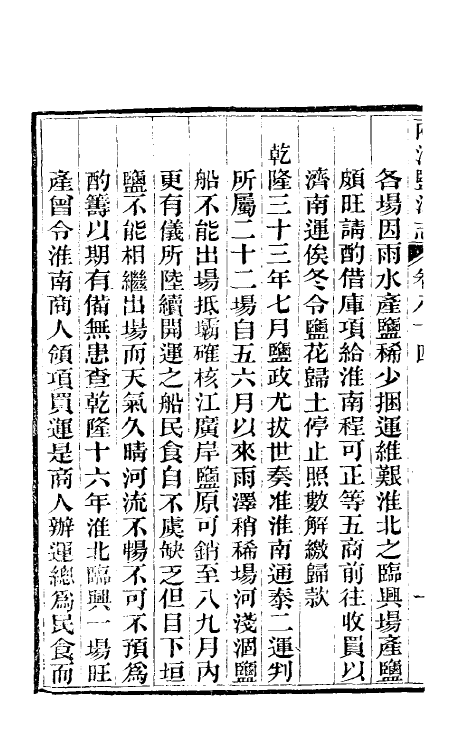 各場因雨水產鹽稀少捆運維艱淮北之臨興場產鹽
頗旺請酌借庫項給淮南程可正等五商前往收買以
濟南運俟冬令鹽花歸土停止照數解繳歸款
乾隆三十三年七月鹽政尤拔世奏准淮南通泰二運判
所屬二十二場自五六月以來雨澤稍稀場河淺涸鹽
船不能出場抵壩確核江廣岸鹽原可銷至八九月內
更有儀所陸續開運之船民食自不虞缺乏但目下垣
鹽不能相繼出場而天氣久晴河流不暢不可不預為
酌籌以期有備無患查乾隆十六年淮北臨興一場旺
產曾令淮南商人領項買運是商人辦運總為民食而